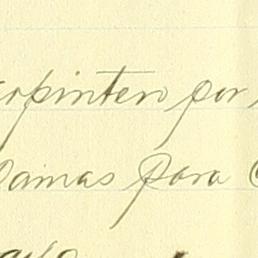 carpintero por
Damas para